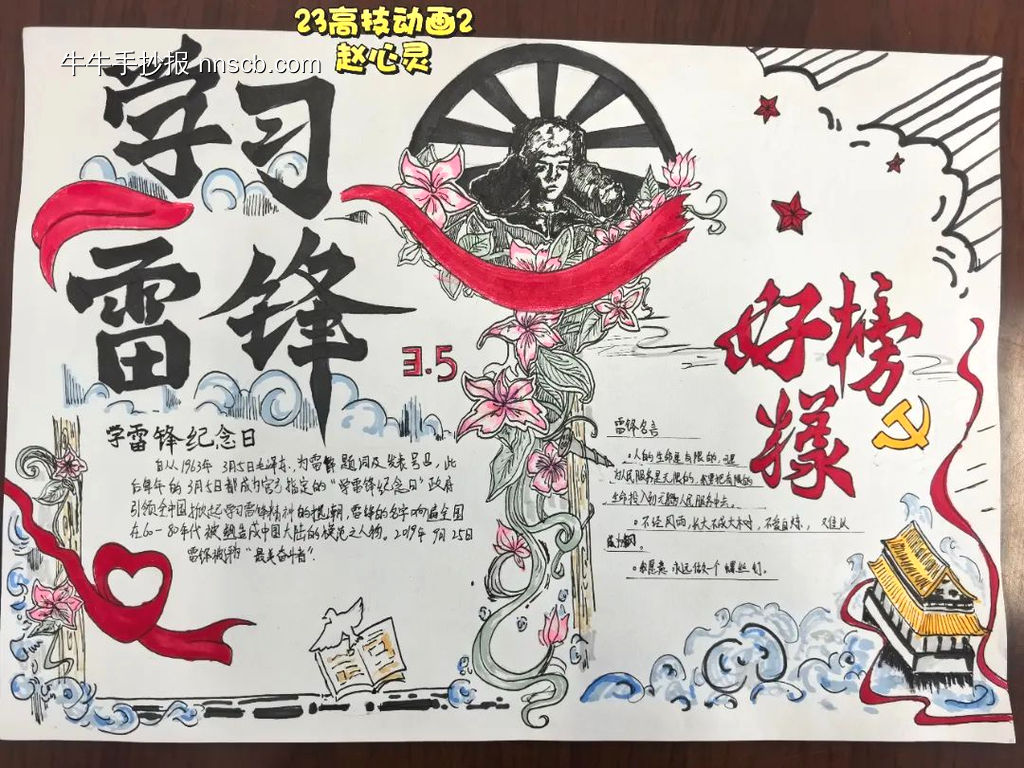 23高技动画2
赵心灵
牛牛手抄报 nnscb.com
学习
雷锋
3.5
好榜
样
学雷锋纪念日
自从1963年3月5日毛泽东、为雷锋题词及发表号召，此
后每年的3月5日都成为官方指定的“学雷锋纪念日”政府
引领全中国掀起学习雷锋精神的热潮，雷锋的名字响遍全国
在60－80年代被塑造成中国大陆的模范之人物。2019年9月25日
雷锋被评“最美奋斗者”
雷锋名言
人的生命是有限的，可是
为人民服务是无限的，我要把有限的
生命投入到无限为人民服务中去。
不经风雨，长大不成大木材，不受百炼，
成钢。
我愿意永远做一个螺丝钉。